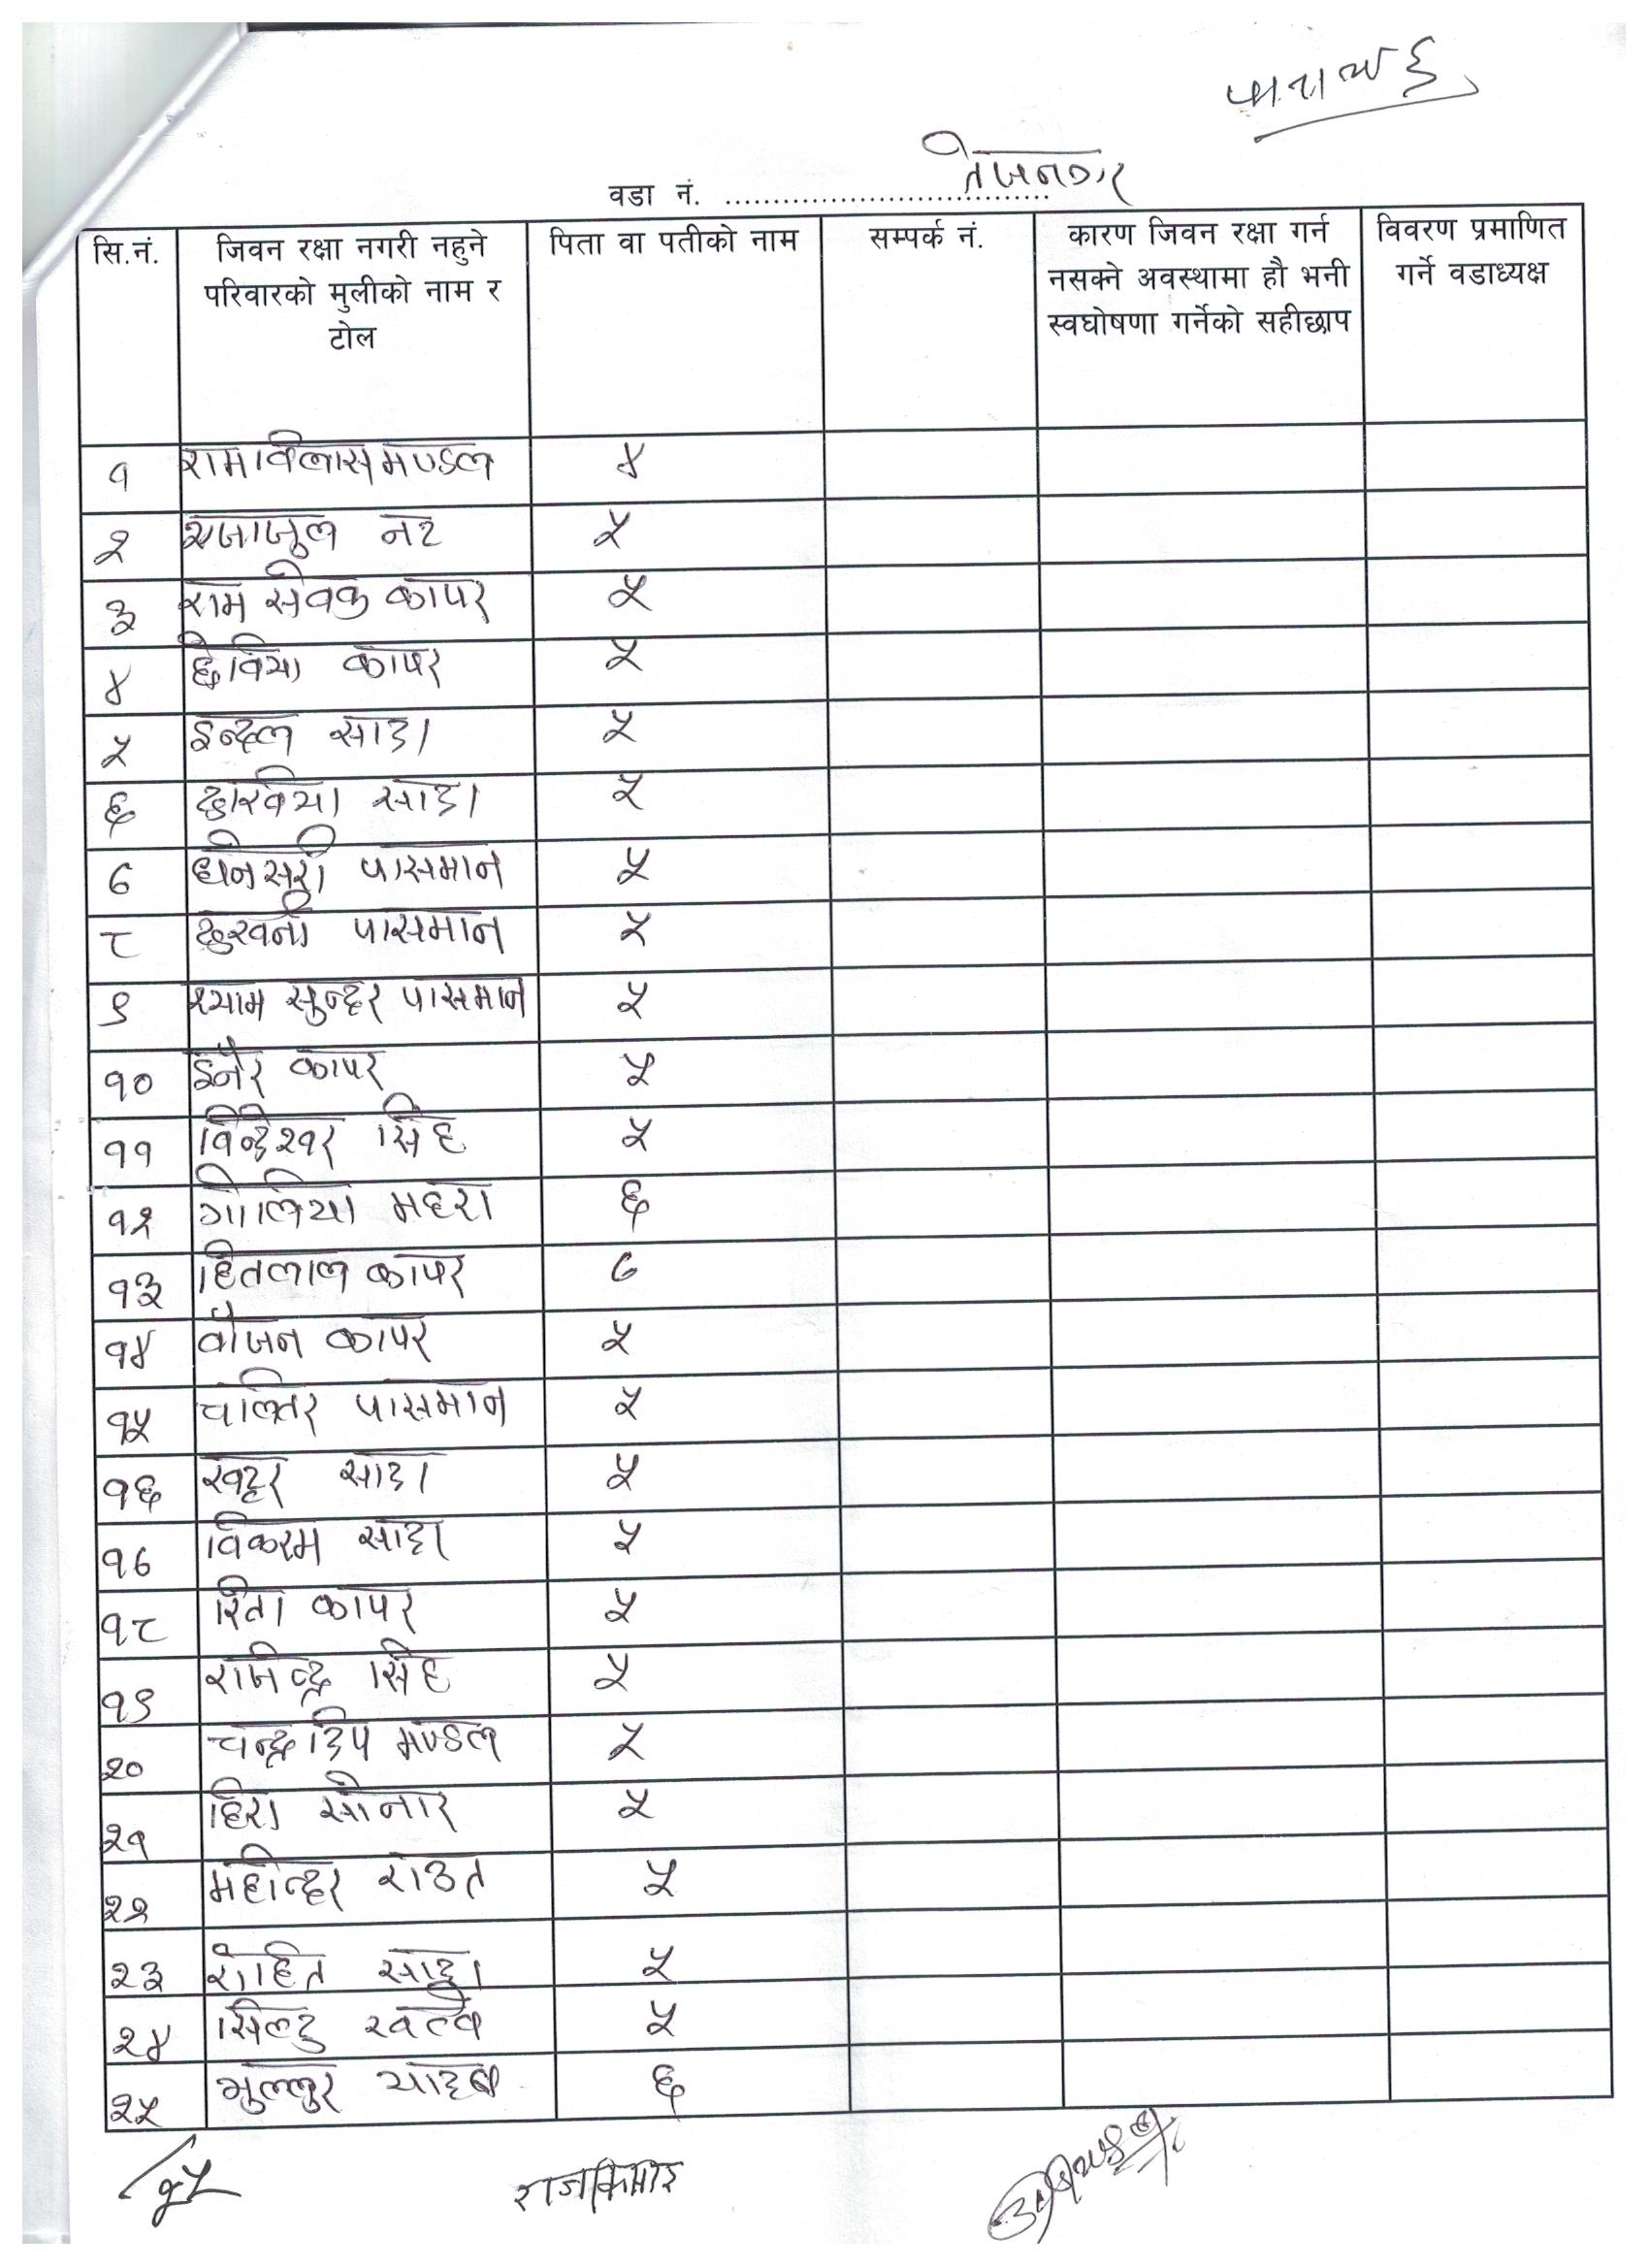 तेजनगर
वडा नं. ..................................
सि.नं. जिवन रक्षा नगरी नहुने परिवारको मुलीको नाम र टोल पिता वा पतीको नाम सम्पर्क नं. कारण जिवन रक्षा गर्न नसक्ने अवस्थामा हौ भनी स्वघोषणा गर्नेको सहीछाप विवरण प्रमाणित गर्ने वडाध्यक्ष
१ रामविलास मण्डल ४
२ नट ५
३ राम सेवक कापर ५
४ छेविया कापर ५
५ इन्दल सादा ५
६ दुखिया सादा ५
७ धनेसरी पासमान ५
८ दुखनी पासमान ५
९ श्याम सुन्दर पासमान ५
१० इनर कापर ५
११ विन्देश्वर सिंह ५
१२ महरा ६
१३ हितलाल कापर ७
१४ कापर ५
१५ चलितर पासमान ५
१६ खट्टर सादा ५
१७ विकरम सादा ५
१८ रिता कापर ५
१९ राजेन्द्र सिंह ५
२० चन्द्रदिप मण्डल ५
२१ हिरा सोनार ५
२२ महेन्दर राउत ५
२३ रोहित सादा ५
२४ सिल्टु खत्वे ५
२५ भुल्लुर यादव ६
राजकिमार